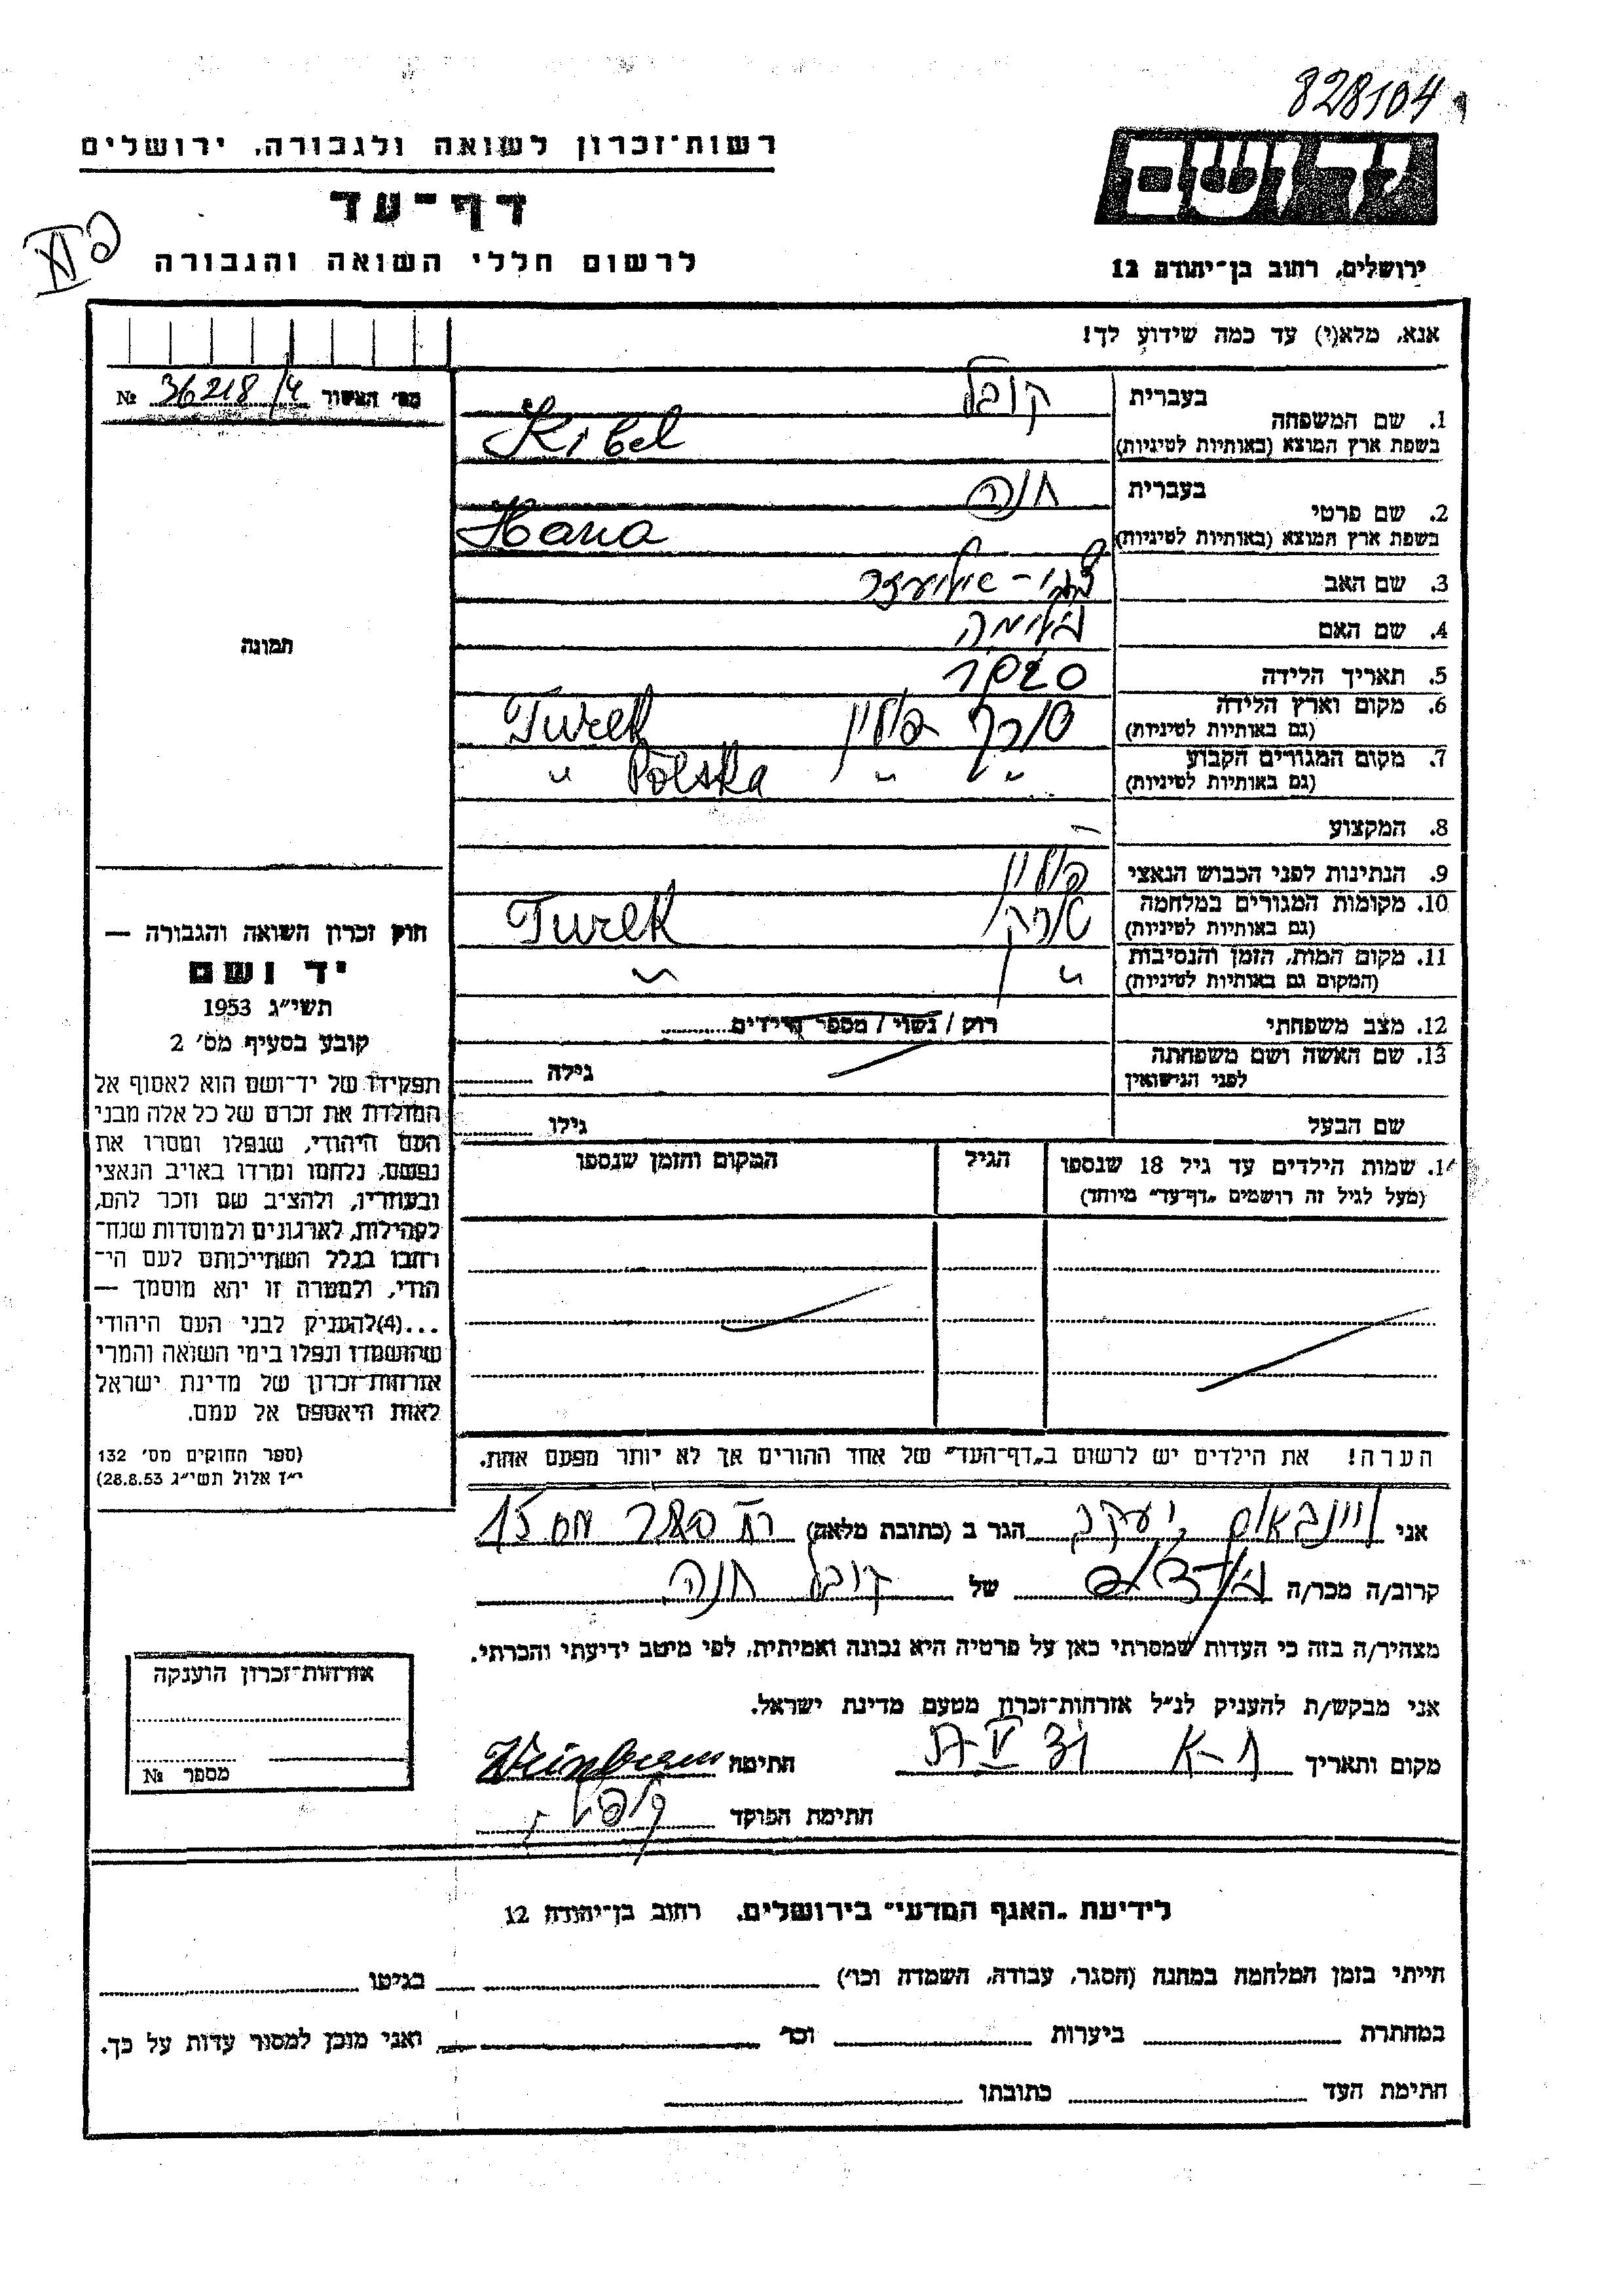 828104
רשות־זכרון לשואה ולגבורה, ירושלים
יד ושם
דף־עד
לרשום חללי השואה והגבורה
ירושלים, רחוב בן־יהודה 12
אנא, מלא(י) עד כמה שידוע לך!
מס׳ האשור 36218/4 №
1. שם המשפחה
בעברית קובל
בשפת ארץ המוצא (באותיות לטיניות) Kibel
2. שם פרטי
בעברית חנה
בשפת ארץ המוצא (באותיות לטיניות) Hana
3. שם האב
4. שם האם
5. תאריך הלידה
6. מקום וארץ הלידה
(גם באותיות לטיניות) טורק פולין Turek
7. מקום המגורים הקבוע
(גם באותיות לטיניות) " " " Polska "
8. המקצוע —
9. הנתינות לפני הכבוש הנאצי פולין
10. מקומות המגורים במלחמה
(גם באותיות לטיניות) טורק Turek
11. מקום המות, הזמן והנסיבות
(המקום גם באותיות לטיניות) " "
12. מצב משפחתי רוק / נשוי / מספר הילדים
13. שם האשה ושם משפחתה
לפני הנישואין
גילה
שם הבעל
גילו
14. שמות הילדים עד גיל 18 שנספו
(מעל לגיל זה רושמים „דף־עד״ מיוחד)
הגיל
המקום והזמן שנספו
הערה! את הילדים יש לרשום ב„דף־העד״ של אחד ההורים אך לא יותר מפעם אחת.
תמונה
חוק זכרון השואה והגבורה —
יד ושם
תשי״ג 1953
קובע בסעיף מס׳ 2
תפקידו של יד־ושם הוא לאסוף אל
המולדת את זכרם של כל אלה מבני
העם היהודי, שנפלו ומסרו את
נפשם, נלחמו ומרדו באויב הנאצי
ובעוזריו, ולהציב שם וזכר להם,
לקהילות, לארגונים ולמוסדות שנח־
רחבו בגלל השתייכותם לעם הי־
הודי, ולמטרה זו יהא מוסמך —
...(4) להעניק לבני העם היהודי
שהושמדו ונפלו בימי השואה והמרי
אזרחות־זכרון של מדינת ישראל
לאות היאספם אל עמם.
(ספר החוקים מס׳ 132
י״ז אלול תשי״ג 28.8.53)
אני ויינבאום יעקב הגר ב (כתובת מלאה) 15
קרוב/ה מכר/ה של קובל חנה
מצהיר/ה בזה כי העדות שמסרתי כאן על פרטיה היא נכונה ואמיתית, לפי מיטב ידיעתי והכרתי.
אני מבקש/ת להעניק לנ״ל אזרחות־זכרון מטעם מדינת ישראל.
מקום ותאריך ת-א חתימה Weinbaum
חתימת הפוקד
אזרחות־זכרון הוענקה
מספר №
לידיעת „האגף המדעי״ בירושלים, רחוב בן־יהודה 12
הייתי בזמן המלחמה במחנה (הסגר, עבודה, השמדה וכו׳) בגיטו
במחתרת ביערות וכו׳ ואני מוכן למסור עדות על כך.
חתימת העד כתובתו